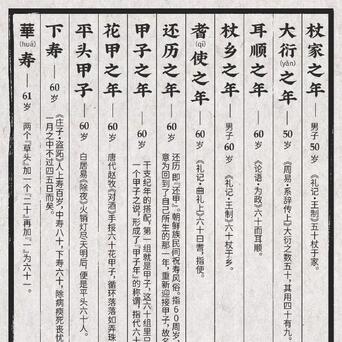 杖家之年——男子50岁 《礼记·王制》五十杖于家。
大衍之年——50岁 《周易·系辞传上》大衍之数五十，其用四十有九。
(yǎn)
耳顺之年——60岁 《论语·为政》六十而耳顺。
杖乡之年——男子60岁 《礼记·王制》六十杖于乡。
耆使之年——60岁 《礼记·曲礼上》六十曰耆，指使。
(qí)
还历之年——60岁 还历，即“还甲”。朝鲜族民间祝寿风俗。指60周岁，
意为回到了自己所生的那一年，重新迎接甲子，故名
甲子之年——60岁 干支纪年的搭配，第一组就是甲子，这六十组里只
一个甲子之说，形成了“甲子年”的称谓，指代六十
花甲之年——60岁 唐代赵牧《对酒》手挼六十花甲子，循环落落如弄珠
平头甲子——60岁 白居易《除夜》火销灯尽天明后，便是平头六十人。
下寿——60岁 《庄子·盗跖》人上寿百岁，中寿八十，下寿六十，除病瘐死丧忧
一月之中不过四五日而矣。
華寿 61岁 两个“草头”加一个“二十”再加“一”为六十一。
(huá)